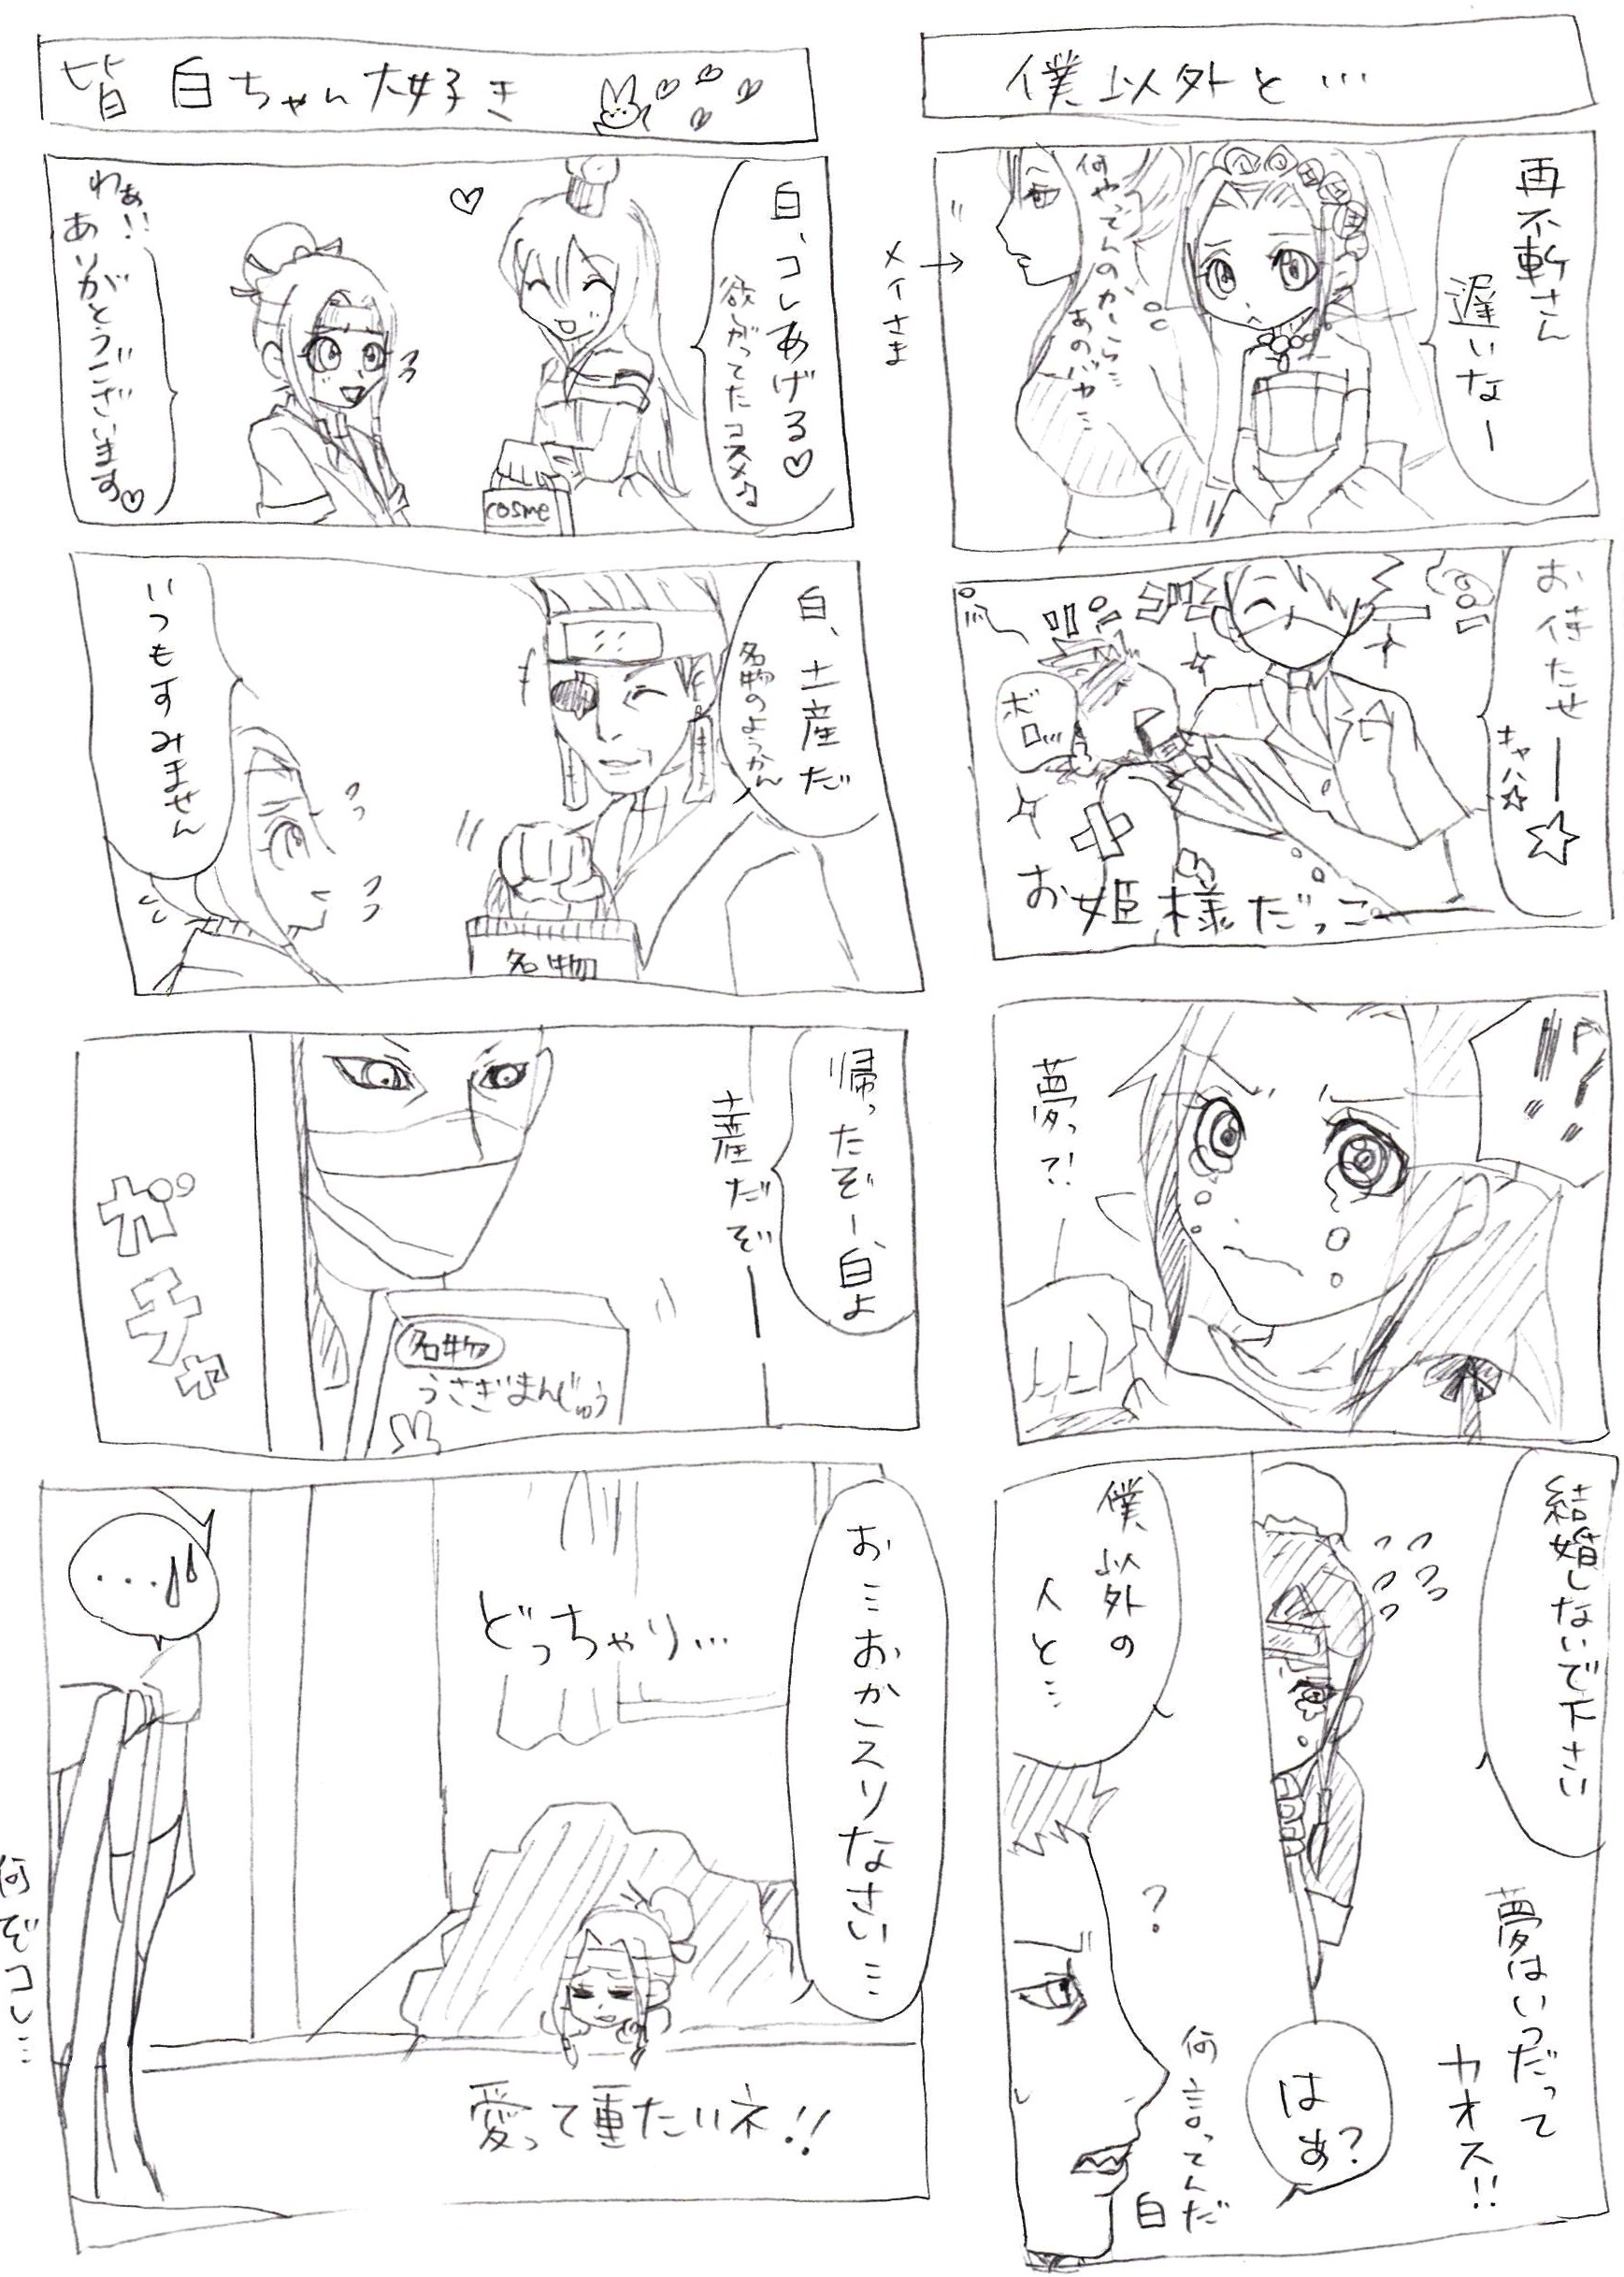 僕以外と…
再不斬さん
遅いなー
何やってんのかしら…
あのバカ…
メイさま
お待たせー☆
キャハ☆
ボロッ…
お姫様だっこー
!?
夢っ?!
結婚しないで下さい
僕以外の
人と…
夢はいつだって
カオス!!
はぁ?
?
何言ってんだ
白
皆白ちゃん大好き
白、コレあげる♡
欲しがってたコスメ♪
わぁ!!
ありがとうございます♡
cosme
白、土産だ
名物のようかん
いつもすみません
名物
帰ったぞー、白よ
土産だぞー
ガチャ
名物
うさぎまんじゅう
お…おかえりなさい…
どっちゃり…
…
何ぞコレ…
愛って重たいネ!!